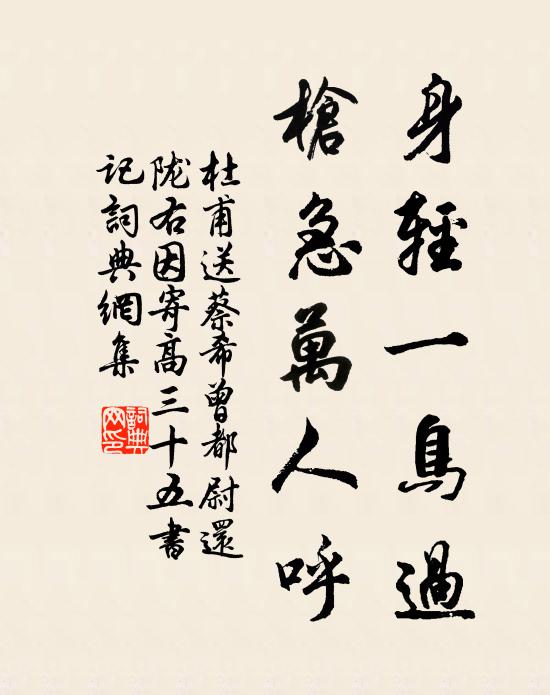 身輕一鳥過
槍急萬人呼
杜甫送蔡希曾都尉還
陇右因寄高三十五書
記詞典網集
詞典網印